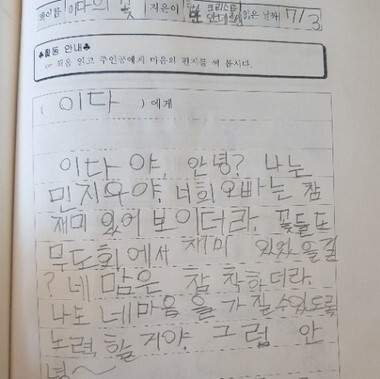 책이름 이다의 꽃 지은이 한스 크리스티안 안데르센 읽은 날짜 7/3
♣활동 안내♣
☞ 책을 읽고 주인공에게 마음의 편지를 써 봅시다.
( 이다 ) 에게
이다야, 안녕? 나는
민지와야. 너희 오빠는 참
재미 있어 보이더라. 꽃들 또
무도회에서 재미 있었을걸
? 네 맘은 참 착하더라.
나도 네 마음을 가질 수 있도록
노력할 거야. 그럼 안
녕~